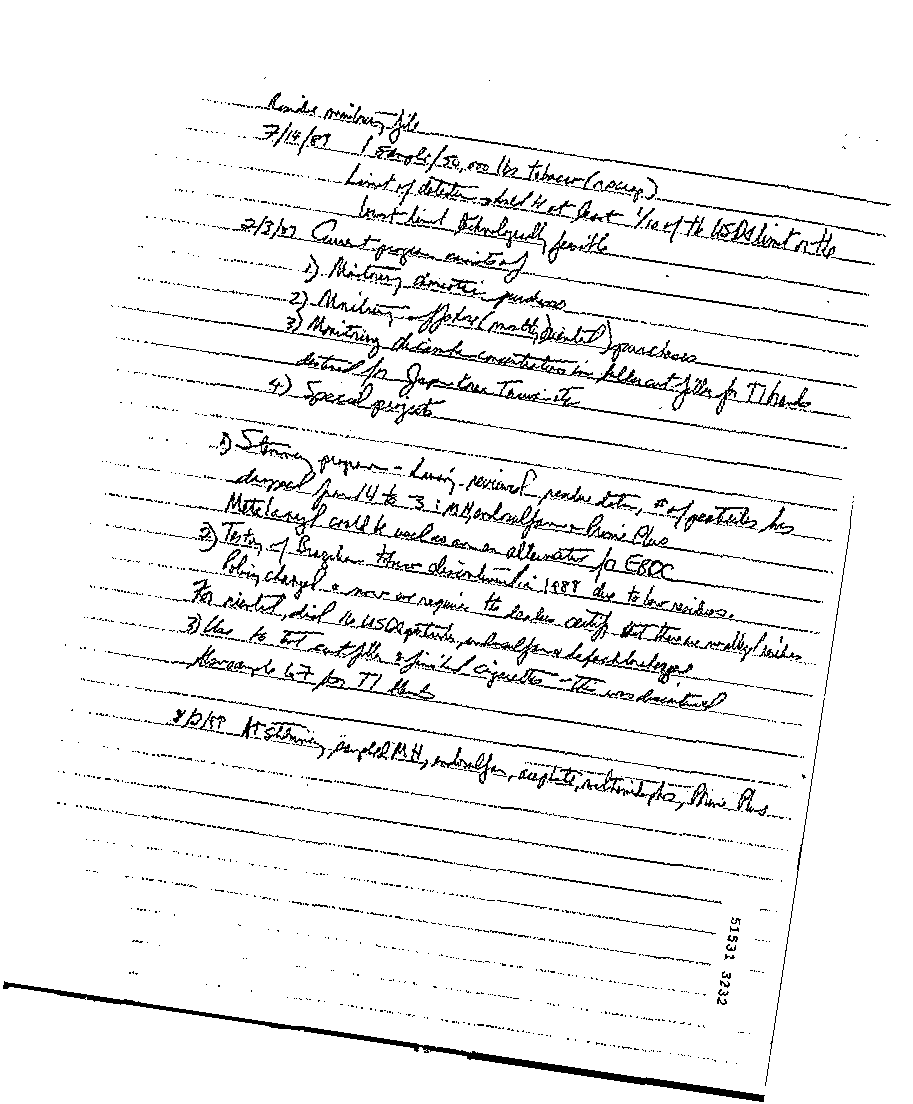 Residue monitoring file
7/14/89 1 sample/50,000 lbs tobacco
Limit of detection should be at least 1/10 of the USDA limit or the
lowest limit technologically feasible
2/3/89 Current program consists of
1) Monitoring domestic purchases
2) Monitoring offshore ( oriental) purchases
3) Monitoring dicamba concentrations in fuller cut filler for TI brands
destined for Japan Taiwan etc
4) Special projects
1) Stemmery program - having reviewed residue data, # of pesticides has
dropped from 14 to 3 : MH, endosulfan & Prime Plus
Metalaxyl could be used as an alternative for EBDC
2) Testing of Brazilian discontinued in 1988 due to low residues.
Policy changed & now we require the dealers certify that there are residues
For oriental, did the USDA pesticides, endosulfan &
3) Use to test cut filler & finished cigarettes - this was discontinued
Now sample for TI
8/3/89 At stemmery, sampled MH, endosulfan, acephate, methamidophos, Prime Plus
51531 3232